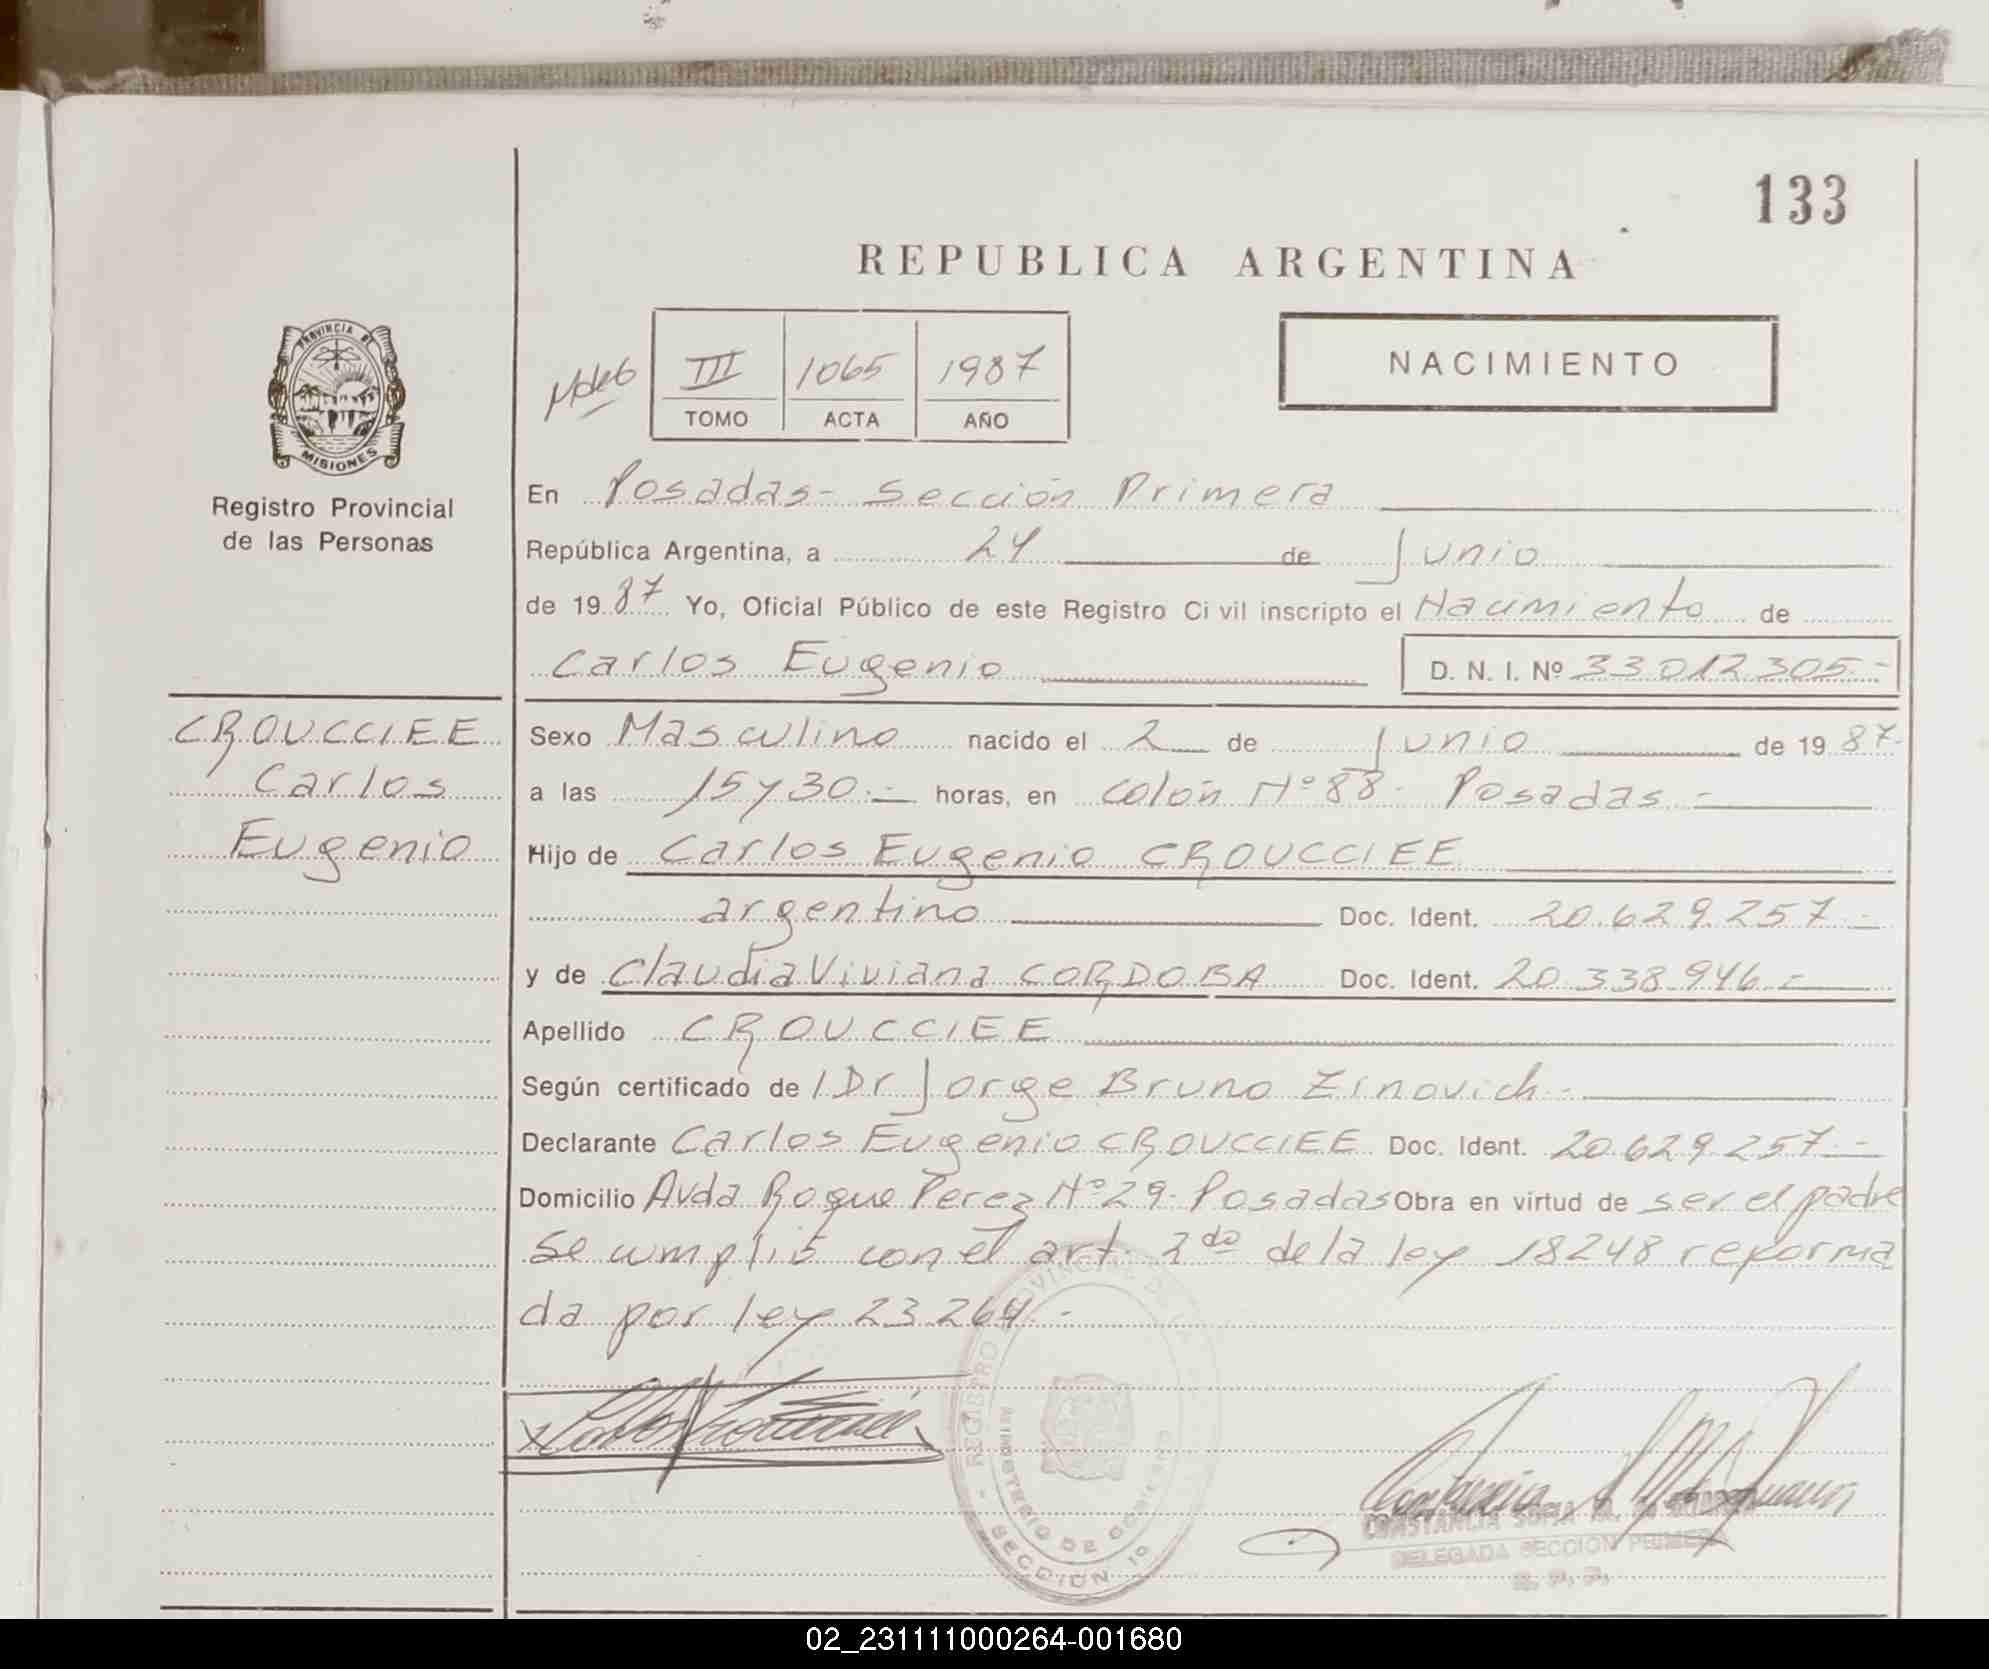 133
REPUBLICA ARGENTINA
PROVINCIA DE
MISIONES
Registro Provincial
de las Personas
III 1065 1987
TOMO ACTA AÑO
NACIMIENTO
En Posadas- Sección Primera
República Argentina, a 24 de Junio
de 1987 Yo, Oficial Público de este Registro Civil inscripto el Nacimiento de
Carlos Eugenio D. N. I. Nº 33012305.-
CROUCCIEE
Carlos
Eugenio
Sexo Masculino nacido el 2 de Junio de 1987.
a las 15 y 30.- horas, en Colón Nº 88. Posadas.-
Hijo de Carlos Eugenio CROUCCIEE
argentino Doc. Ident. 20.629.257.-
y de Claudia Viviana CORDOBA Doc. Ident. 20.338.946.-
Apellido CROUCCIEE
Según certificado de l Dr Jorge Bruno Zinovich.-
Declarante Carlos Eugenio CROUCCIEE Doc. Ident. 20.629.257.-
Domicilio Avda Roque Perez Nº 29. Posadas Obra en virtud de ser el padre
Se cumplió con el art. 2do de la ley 18248 reforma
da por ley 23.264.-
REGISTRO PROVINCIAL DE LA
MINISTERIO DE GOBIERNO
SECCION 10
CONSTANCIA SOFIA M. de
DELEGADA SECCION PRIMERA
R. P. P.
02_231111000264-001680